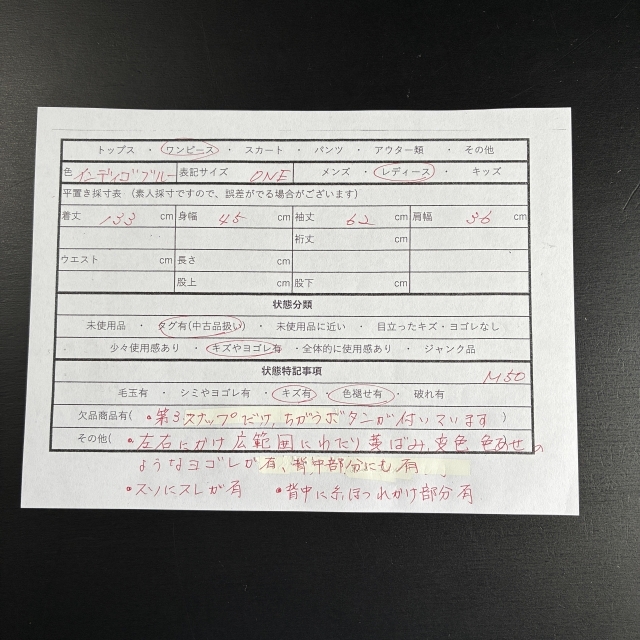 トップス ・ ワンピース ・ スカート ・ パンツ ・ アウター類 ・ その他
色 インディゴブルー 表記サイズ ONE メンズ ・ レディース ・ キッズ
平置き採寸表 (素人採寸ですので、誤差がでる場合がございます)
着丈 133 cm 身幅 45 cm 袖丈 62 cm 肩幅 36 cm
cm 裄丈 cm
ウエスト cm 長さ cm
股上 cm 股下 cm
状態分類
未使用品 ・ タグ有(中古品扱い) ・ 未使用品に近い ・ 目立ったキズ・ヨゴレなし
少々使用感あり ・ キズやヨゴレ有 ・全体的に使用感あり ・ ジャンク品
状態特記事項
M50
毛玉有 ・ シミやヨゴレ有 ・ キズ有 ・ 色褪せ有 ・ 破れ有
欠品商品有( ・第3スナップだけ、ちがうボタンが付いています )
その他( ・左右にかけ広範囲にわたり黄ばみ、変色、色あせの
ようなヨゴレが有、背中部分にも有
・スソにスレが有 ・背中に糸ほつれかけ部分有